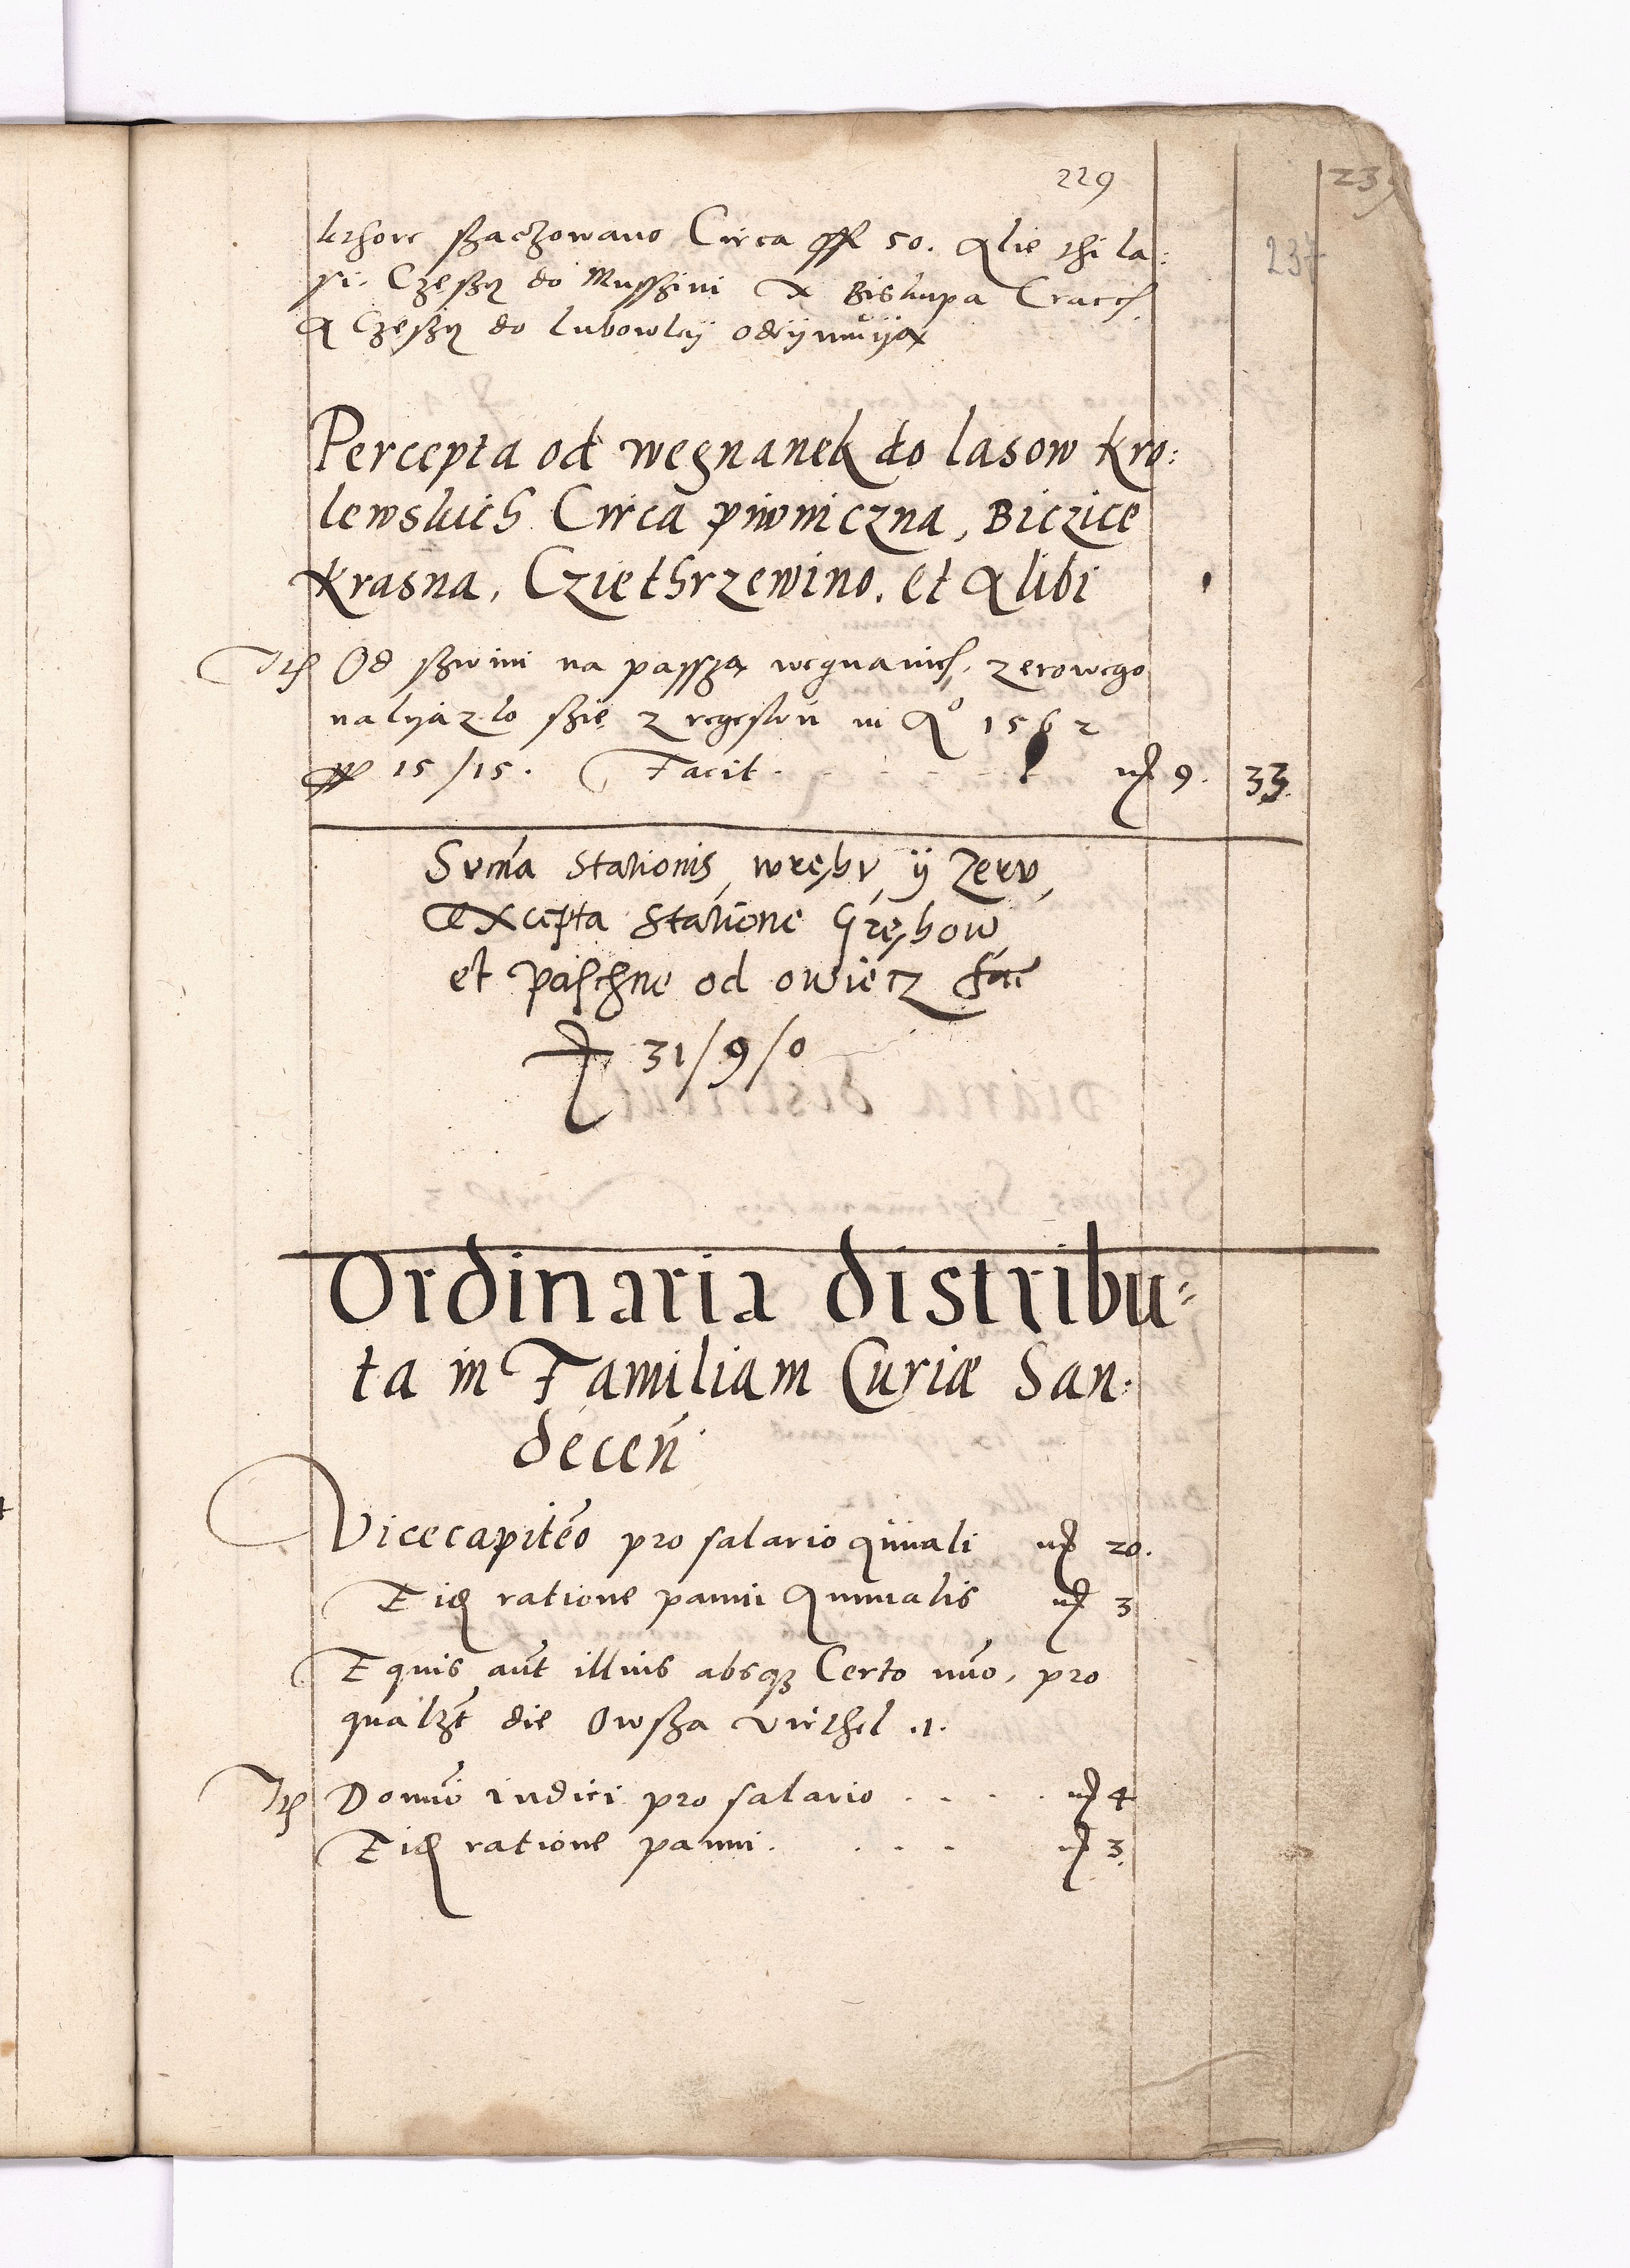 229
239
237
kthore szaczowano Circa ffl 50. Alie thi la:
si. Częszcz do Musszini X Biskupa Cracch
A Częszcz do lubowlÿ odÿmuÿą
Percepta od wegnanek do lasow kro:
lewskich Circa piwniczna, Biczice
krasna, Cziethrzewino. et Alibi
Ith Od szwini na passzą wegnanich, zerowego
nalyazlo szię z regestru in Aº 1562
ffl 15/15. Facit. mrc 9. 33.
Sum̃a Stationis, wrębu, ÿ Zeru,
Excepta Statione Grębow,
et paschne od owiecz fac
mrc 31/9/0
Ordinaria distribu=
ta in Familiam Curiæ San:
decen̄
Vicecapiteo pro salario Anñali mrc 20.
Eidem ratione panni Annualis mrc 3
Equis aut̃ illius absqʒ Certo nũo, pro
qualꝫt die Owsza virthel .1.
Ith Domio iudici pro salario . . . . mrc 4
Eidem ratione panni. . . . mrc 3.